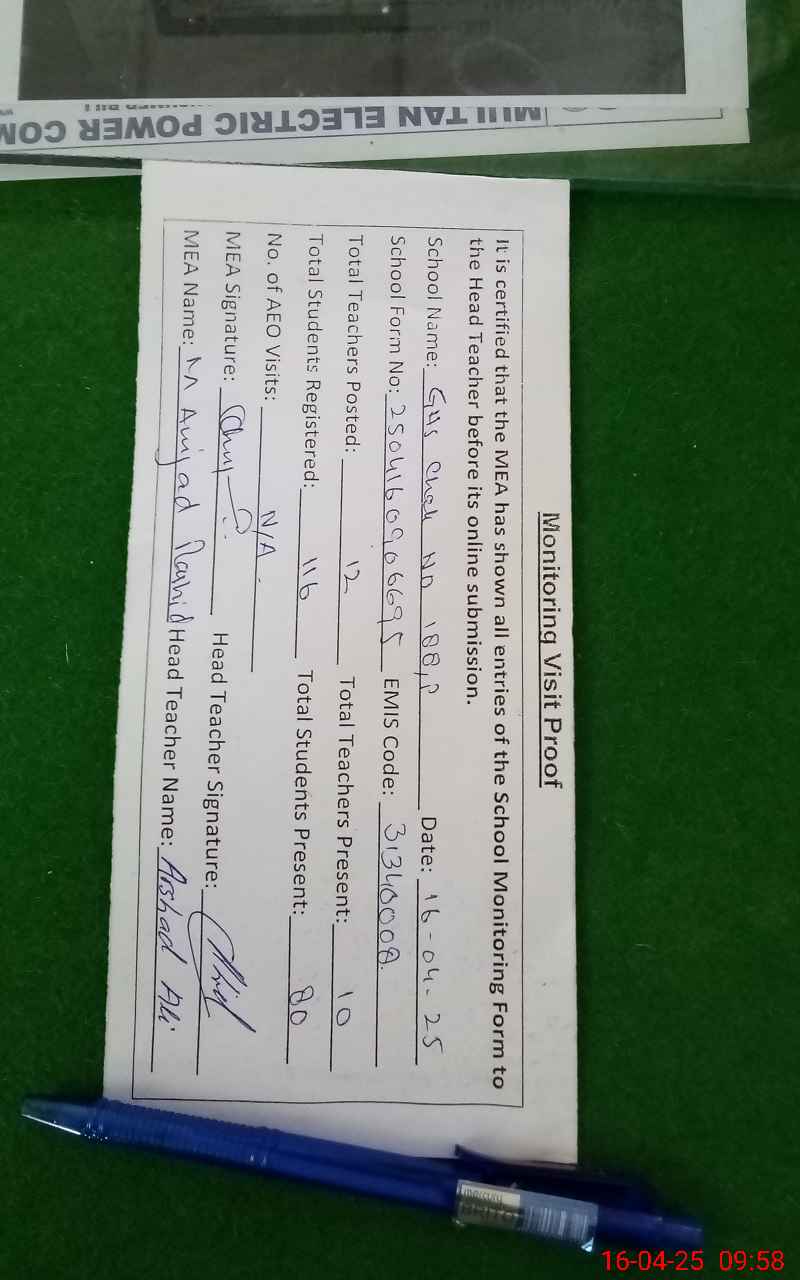 MULTAN ELECTRIC POWER COM
Monitoring Visit Proof
It is certified that the MEA has shown all entries of the School Monitoring Form to
the Head Teacher before its online submission.
School Name: GHS Chak No 188,P Date: 16-04-25
School Form No: 2504160906695 EMIS Code: 31340008
Total Teachers Posted: 12 Total Teachers Present: 10
Total Students Registered: 116 Total Students Present: 80
No. of AEO Visits: N/A
MEA Signature: Head Teacher Signature:
MEA Name: M Amjad Rashid Head Teacher Name: Arshad Ali
16-04-25 09:58